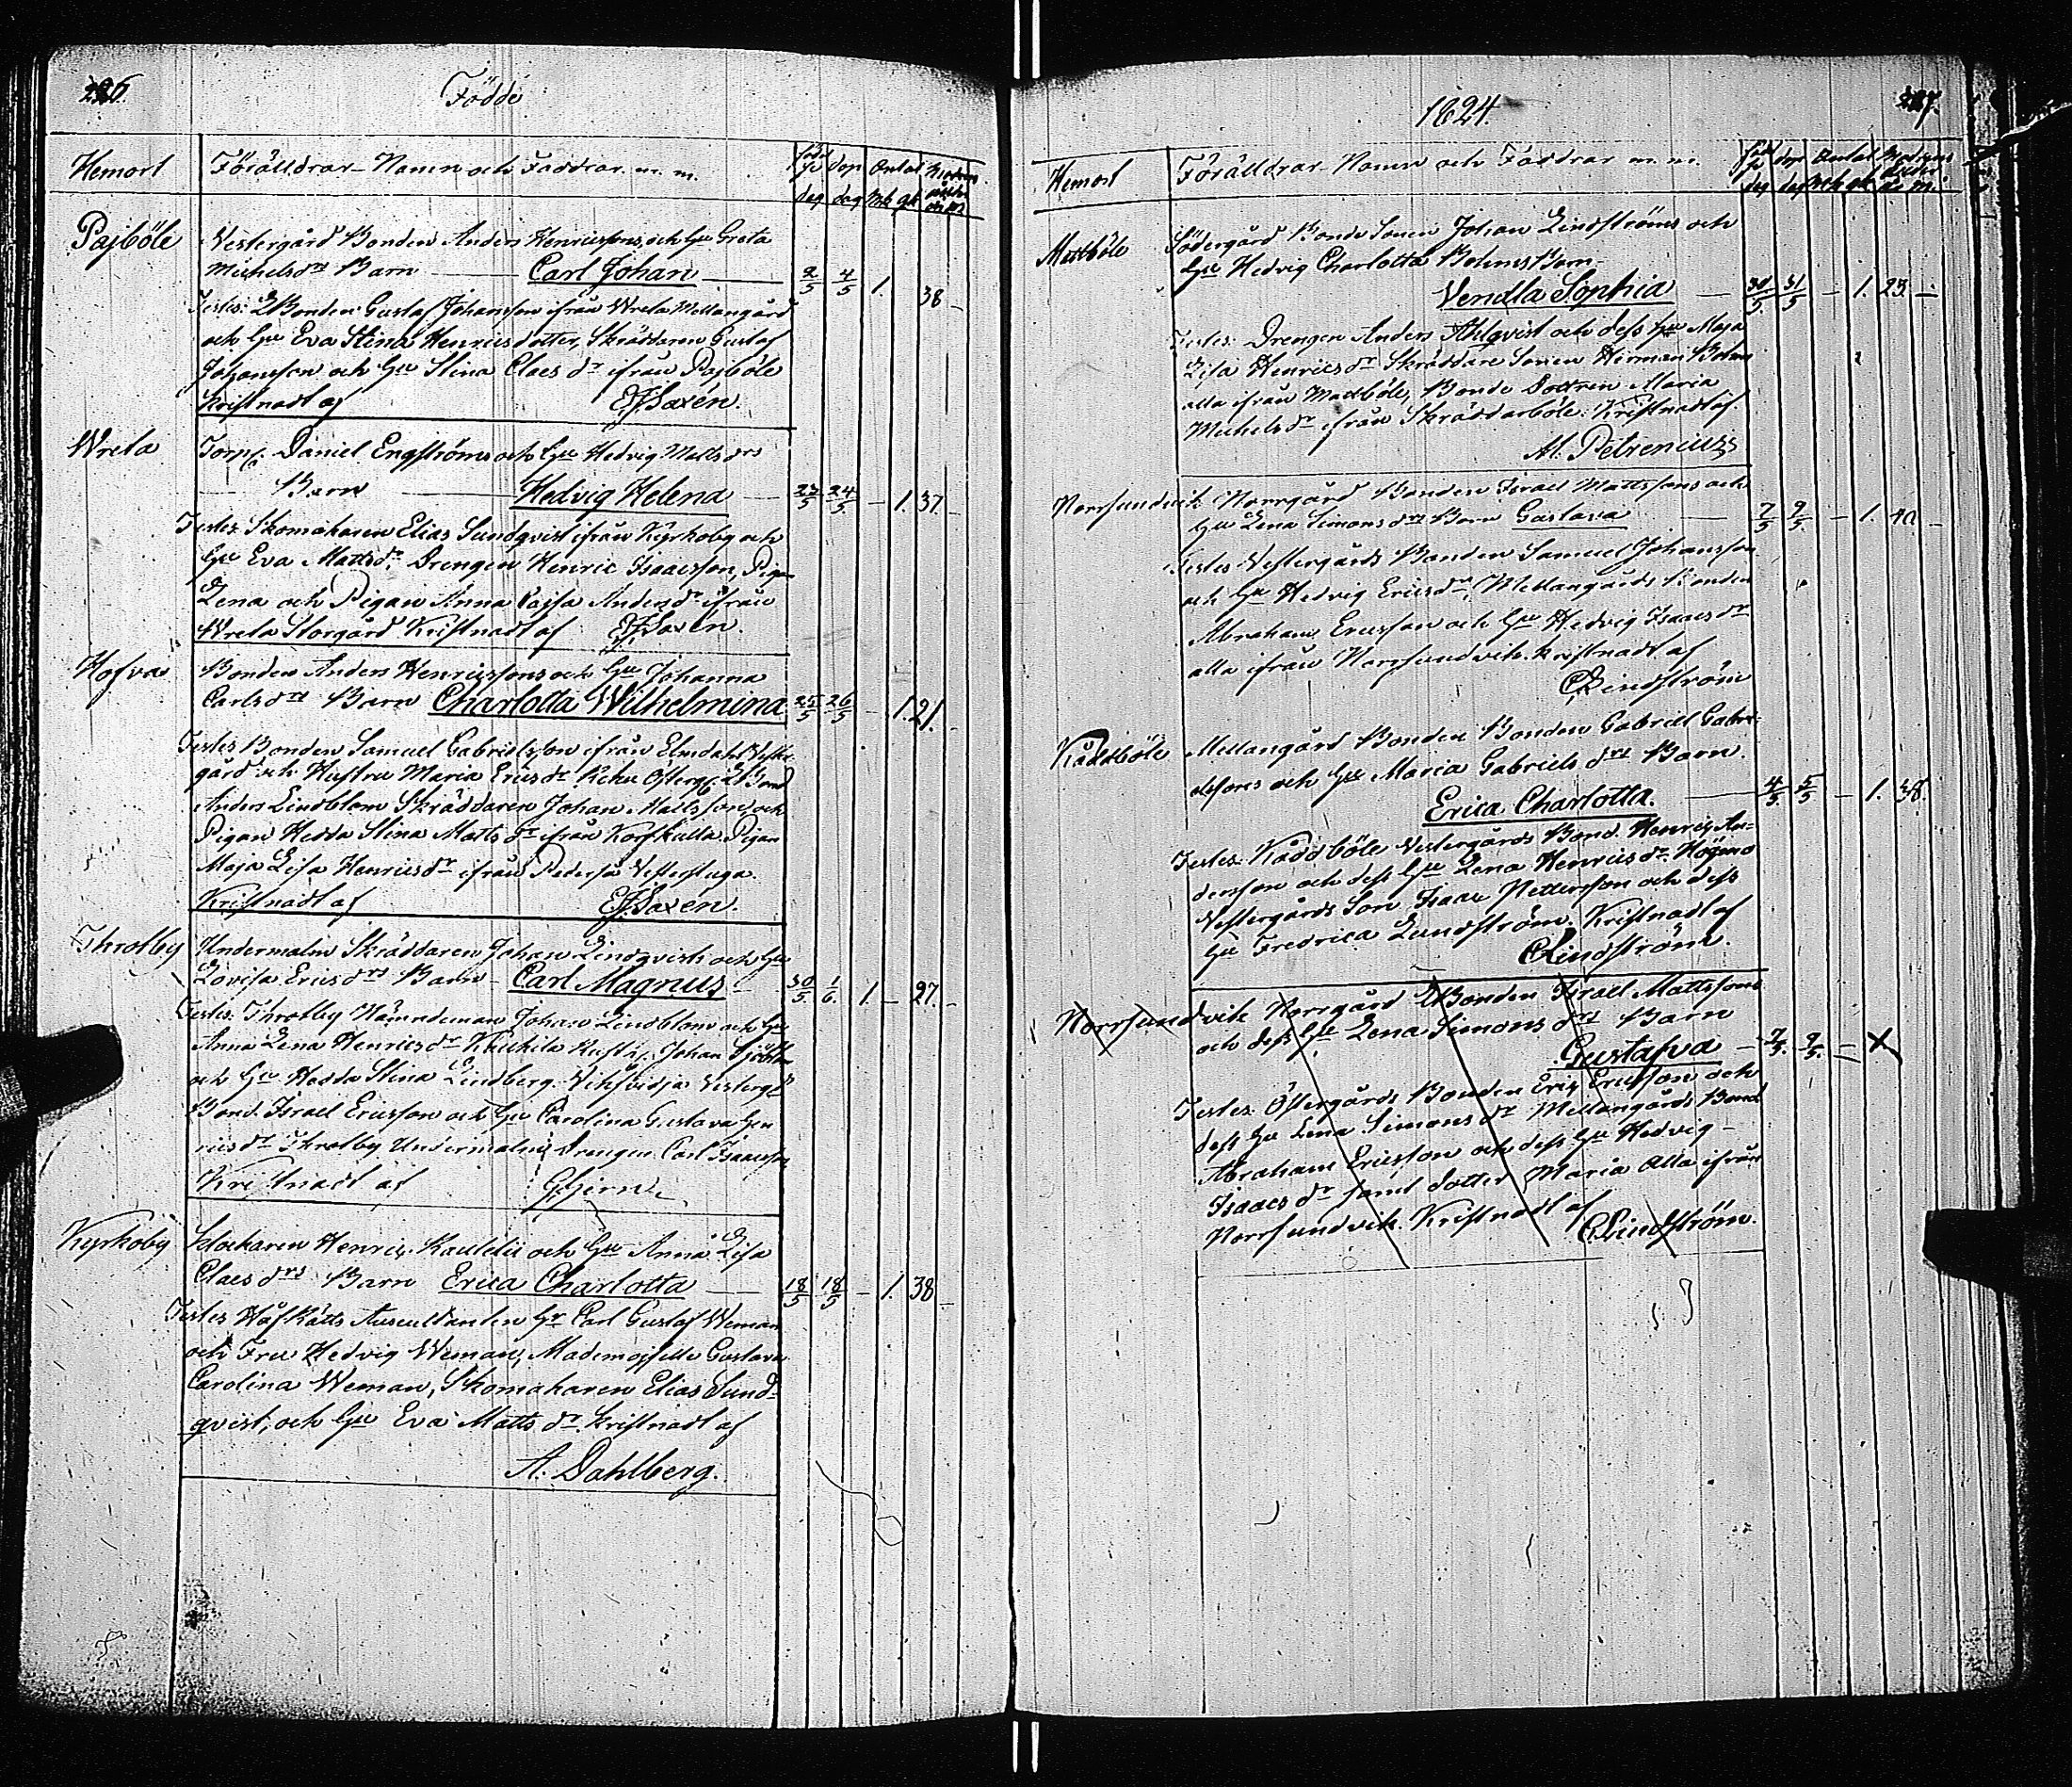 226.
Födde
Hemort
Förälldrar Namn och Faddrar m. m.
född dag
dop dag
Antal
Mk qk
Pajböle
Vestergård Bonden Anders Henricssons och Hu Greta
Michelsdrs Barn — Carl Johan — 2/5 4/5 1. 38 –
Testes: Bonden Gustaf Johansson ifrån Wreta Mellangård
och Hu Eva Stina Henricsdotter, Skräddaren Gustaf
Johansson och Hu Stina Claes dr ifrån Pajböle
Kristnadt af
Wreta
Torp. Daniel Engströms och Hu Hedvig Matts drs
Barn — Hedvig Helena — 23/5 24/5 – 1. 37. –
Testes. Skomakaren Elias Sundqvist ifrån Kyrkoby och
Hu Eva Matts dr, Drengen Henric Isaacsson, Pigan
Lena och Pigan Anna Cajsa Anders dr ifrån
Wreta Storgård Kristnadt af
Hofva
Bonden Anders Henricssons och Hu Johanna
Carls drs Barn Charlotta Wilhelmina 25/5 26/5 – 1. 21. –
Testes Bonden Samuel Gabrielsson ifrån Elmdahl Vester
gård och Hustru Maria Erics dr
Anders Lindblom Skräddaren Johan Mattsson och
Pigan Hedda Stina Matts dr ifrån Korfkulla Pigan
Maja Lisa Henrics dr ifrån Pedersjö Vesterstuga.
Kristnadt af
Throtby
Undermalm Skräddaren Johan Lindqvists och Hu
Lovisa Erics drs Barn – Carl Magnus – 30/5 1/6. 1. – 27. –
Testes. Throtby Nämndeman Johan Lindblom och Hu
Anna Lena Henrics dr Johan
och Hu Hedda Stina Lindberg. Vestergds
Bond. Israel Ericsson och Hu Carolina Gustava Hen
rics dr Throtby Undermalm Drengen Carl Isaacsson
Kristnadt af
Kyrkoby
Klockaren Henric och Hu Anna Lisa
Claes drs Barn Erica Charlotta — 18/5 18/5 – 1. 38 –
Testes HåfRätts Auscultanten Hr Carl Gustaf Weman
och Fru Hedvig Weman, Mademoiselle Gustava
Carolina Weman, Skomakaren Elias Sund-
qvist, och Hu Eva Matts dr Kristnadt af
A. Dahlberg.
1824.
227.
Hemort
Förälldrar Namn och Faddrar m. m.
dag
dag
Antal
Mk qk
Mattböle
Södergård Bonde Sonen Johan Lindströms och
Hu Hedvig Charlotta Bohms Barn –
Vendla Sophia — 30/5. 31/5 – 1. 23. –
Testes: Drengen Anders Ahlqvist och dess Hu Maja
Lisa Henrics dr Skräddare Sonen Herman Bohm
alla ifrån Mattböle, Bonde Dottren Maria
Michels dr ifrån Skräddarböle. Kristnadt af
M. Petrenius
Norrsundvik
Norrgård Bonden Israel Mattssons och
Hu Lena Simons drs Barn Gustava — 7/5 9/5. – 1. 40. –
Testes Vestergårds Bonden Samuel Johansson
och Hu Hedvig Erics dr, Mellangårds Bonden
Abraham Ericsson och Hu Hedvig Isaacs dr
alla ifrån Norrsundvik. Kristnadt af
CLindström
Kåddböle
Mellangård Bonden Bonden Gabriel Gabri-
elssons och Hu Maria Gabriels drs Barn.
Erica Charlotta. — 4/5. 5/5 – 1. 38.
Testes: Kåddböle Vestergårds Bond. Henric An-
dersson och dess Hu Lena Henrics dr.
Vestergårds Son Isaac och dess
Hu Fredrica Lundström. Kristnadt af
CLindström.
Norrsundvik Norrgård Bonden Israel Mattssons
och dess Hu Lena Simons drs Barn
Gustafva – 7/5. 9/5. – X
Testes. Östergårds Bonden Eric Ericsson och
dess Hu Lena Simons dr Mellangårds Bond
Abraham Ericsson och dess Hu Hedvig –
Isaacs dr samt dotter Maria Alla ifrån
Norrsundvik. Kristnadt af
CLindström.